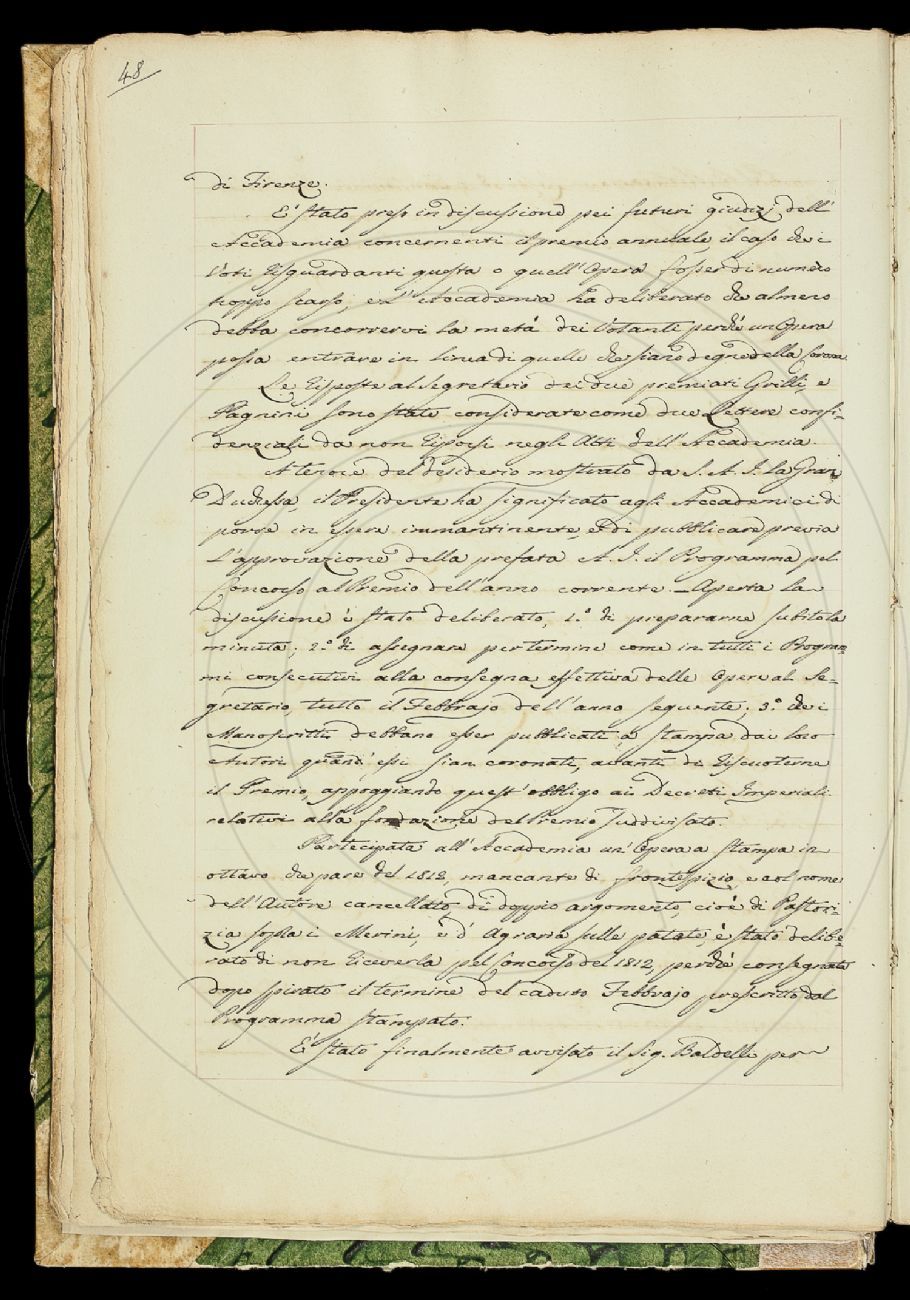 48
di Firenze.
E' stato preso in discussione pei futuri giudizj dell'
Accademia concernenti il premio annuale, il caso che i
Voti risguardanti questa o quell'Opera fosser di numero
troppo scarso, e l'Accademia ha deliberato che almeno
debba concorrervi la metà dei Votanti perchè un Opera
possa entrare in linea di quelle che siano degne della Corona
Le risposte al Segretario dei due premiati Grilli, e
Pagnini sono state considerate come due Lettere confi-
denziali da non riporsi negli Atti dell'Accademia.
A tenore del desiderio mostrato da S. A. I. la Gran
Duchessa, il Presidente ha significato agli Accademici di
porre in essere immantinente, e di pubblicare previa
l'approvazione della prefata A. I. il Programma pel
Concorso al Premio dell'anno corrente. - Aperta la
discussione è stato deliberato, 1.° di prepararne subito la
minuta; 2.° di assegnare per termine come in tutti i Program-
mi consecutivi alla consegna effettiva delle Opere al Se-
gretario, tutto il Febbrajo dell'anno seguente; 3.° che i
Manoscritti debbano esser pubblicati a stampa dai loro
Autori quand'essi sian coronati, avanti di riscuoterne
il Premio, appoggiando quest'obbligo ai Decreti Imperiali
relativi alla fondazione del Premio suddivisato.
Partecipata all'Accademia un'Opera a stampa in
ottavo che pare del 1812, mancante di frontespizio, e col nome
dell'Autore cancellato, di doppio argomento, cioè di Pastori-
zia sopra i Merini, e d'Agraria sulle patate, è stato delibe-
rato di non riceverla pel Concorso del 1812, perchè consegnata
dopo spirato il termine del caduto Febbrajo prescritto dal
Programma stampato.
E' stato finalmente avvisato il Sig. Baldelli per